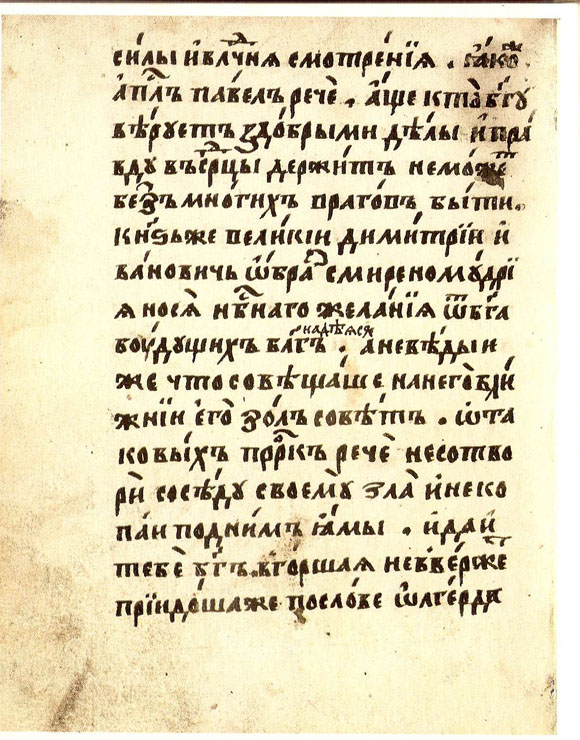 силы ивлⷣчнѧ смотренїѧ . ꙗкоⷤ
апⷭлъ павелъ речѐ . а́ще кто̀ бг҃у
вѣ́руетъ здо́брыми дѣ́лы и҆пра́
вду въсрⷣцы держи́тъ немо́жеⷮ
беꙁъмногихъ врагов̾ъ бы́ти .
кн҃ꙁьже вели́кїи дими́трїи и҆
ва́новичь ѡ҆́браⷥ смиреномꙋ́дрї
ѧ носѧ̀ нбⷭ҇наго жела́нїѧ ѿбг҃а
боу́дущихъ бл҃гъ надѣѧсѧ . аневѣ́дыи
же что совѣща́ше нанего̀ бли́
жнїи его̀ зо́лъ совѣ́тъ . ѡта
ковы́хъ пррⷪ҇къ речѐ несотво
рѝ сосѣ́ду своемꙋ̀ зла̀ и҆неко
паи подни́мъ ꙗ́мы . и҆даи҆
тебѐ бг҃ъ въго́ршаѧ невве́ржеⷮ
прїидо́шаже посло́ве ѡ҆лге́рда